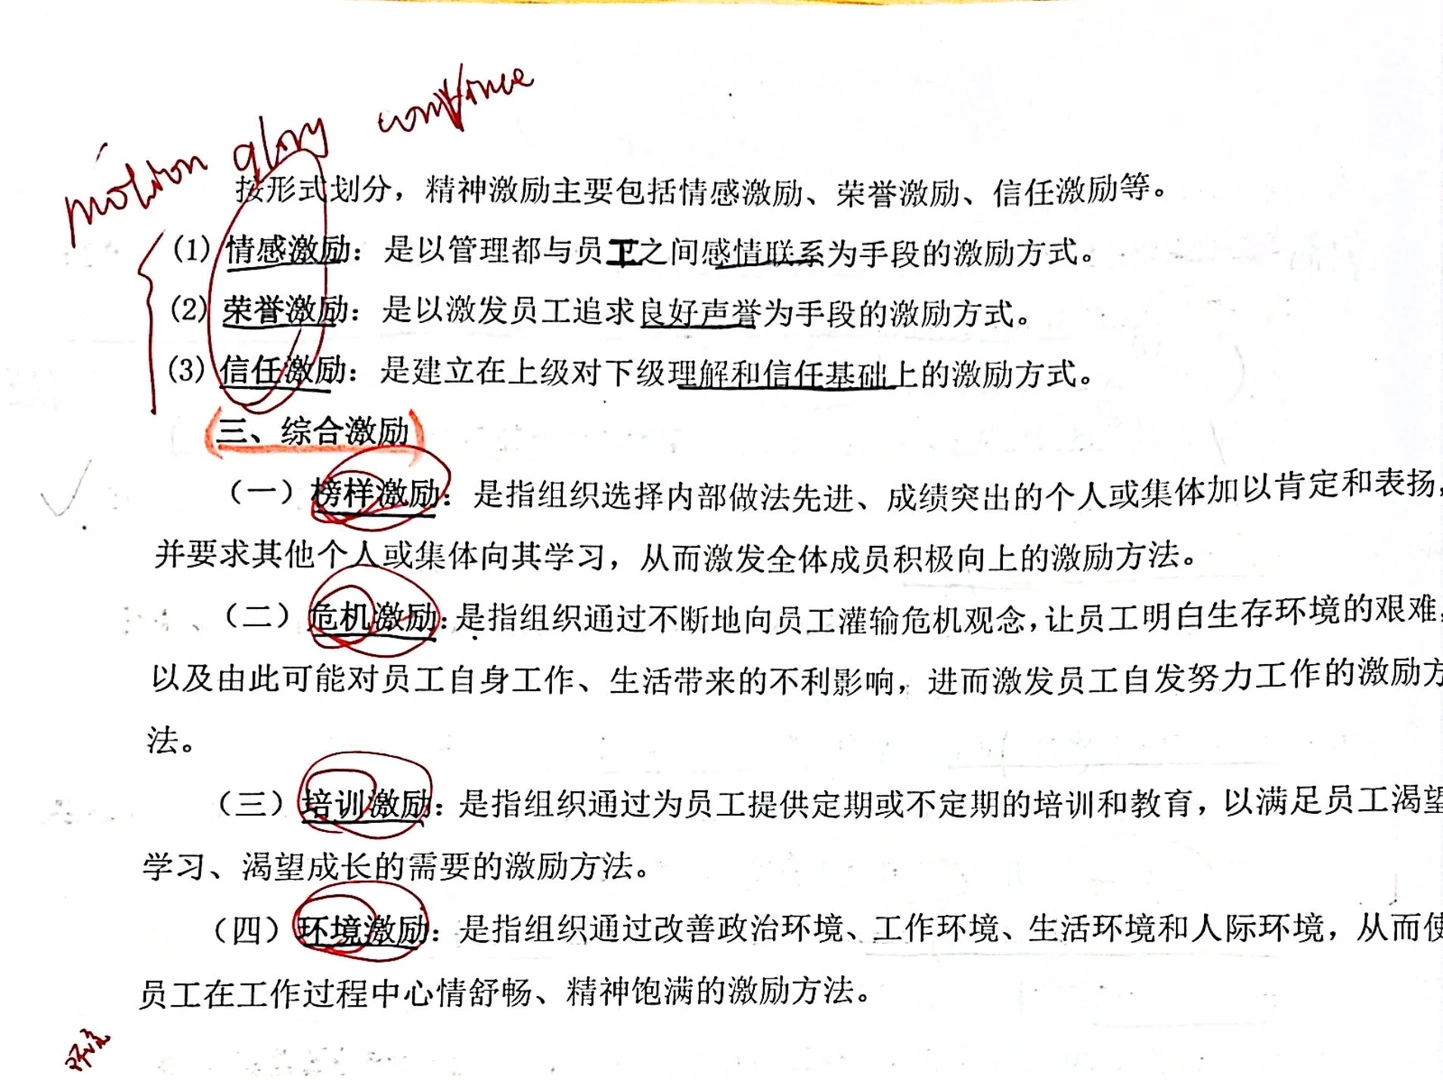 motion glory convince
按形式划分，精神激励主要包括情感激励、荣誉激励、信任激励等。
(1) 情感激励：是以管理都与员工之间感情联系为手段的激励方式。
(2) 荣誉激励：是以激发员工追求良好声誉为手段的激励方式。
(3) 信任激励：是建立在上级对下级理解和信任基础上的激励方式。
三、综合激励
（一）榜样激励：是指组织选择内部做法先进、成绩突出的个人或集体加以肯定和表扬，
并要求其他个人或集体向其学习，从而激发全体成员积极向上的激励方法。
（二）危机激励：是指组织通过不断地向员工灌输危机观念，让员工明白生存环境的艰难，
以及由此可能对员工自身工作、生活带来的不利影响，进而激发员工自发努力工作的激励方
法。
（三）培训激励：是指组织通过为员工提供定期或不定期的培训和教育，以满足员工渴望
学习、渴望成长的需要的激励方法。
（四）环境激励：是指组织通过改善政治环境、工作环境、生活环境和人际环境，从而使
员工在工作过程中心情舒畅、精神饱满的激励方法。